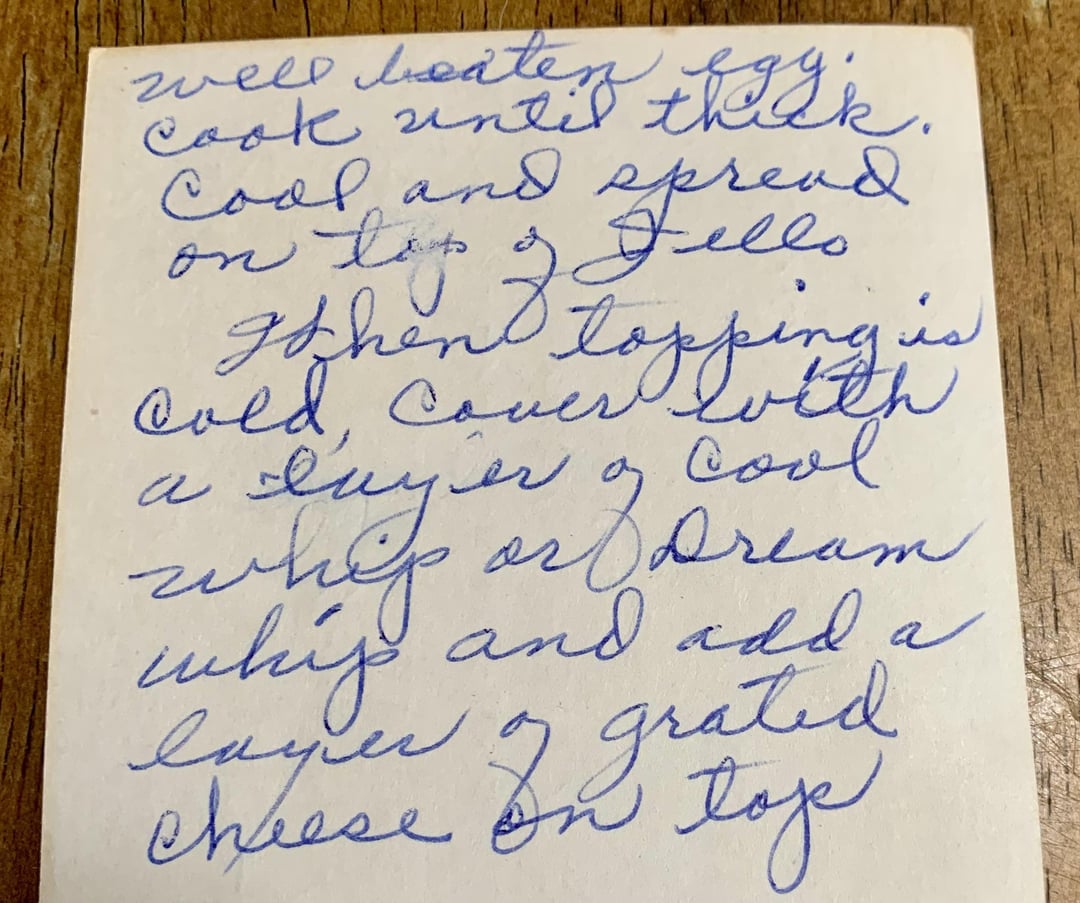 well beaten egg.
Cook until thick.
Cool and spread
on top of Jello
When topping is
Cold, Cover with
a layer of Cool
whip or Dream
whip and add a
layer of grated
cheese on top